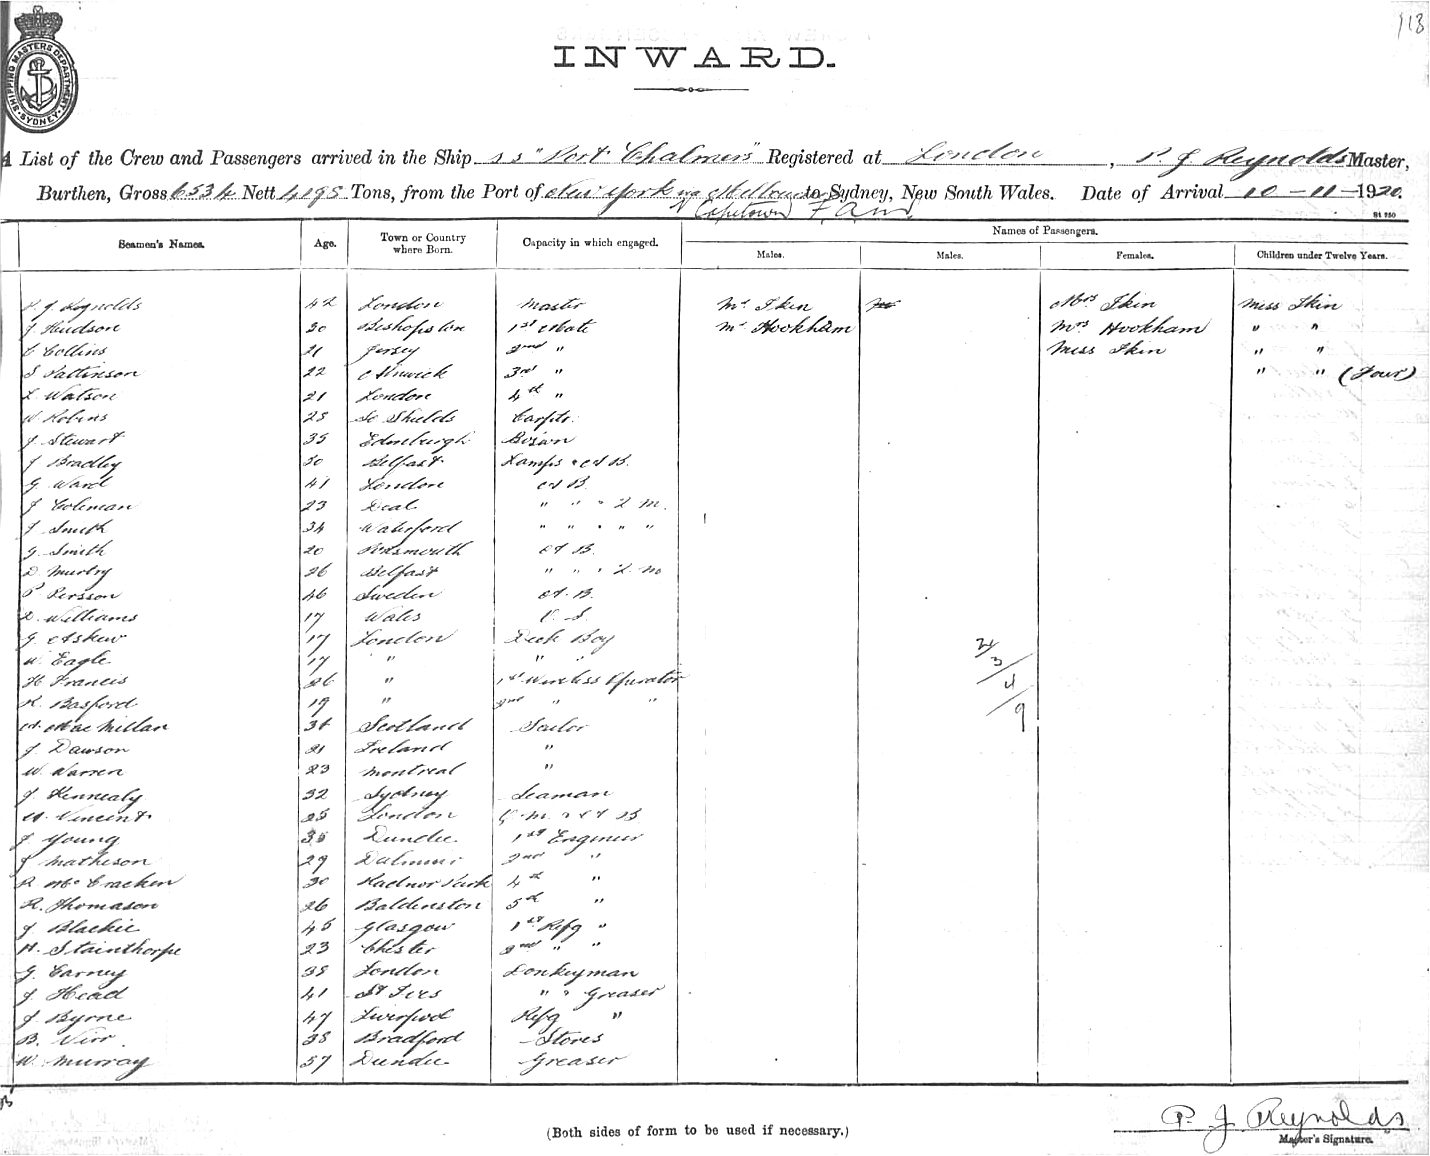 113
SHIPPING MASTERS DEPARTMENT SYDNEY
INWARD.
A List of the Crew and Passengers arrived in the Ship s s "Port Chalmers" Registered at London, P. J. Reynolds Master,
Burthen, Gross 6534 Nett 4195 Tons, from the Port of New York via Melbourne to Sydney, New South Wales. Date of Arrival 10-11-1920.
Capetown
St 750
Seamen's Names. Age. Town or Country where Born. Capacity in which engaged. Names of Passengers.
Males. Males. Females. Children under Twelve Years.
P. J. Reynolds 42 London Master Mr Ikin Mrs Ikin Miss Ikin
J Hudson 30 Bishopston 1st Mate Mr Hookham Mrs Hookham " "
C Collins 21 Jersey 2nd " Miss Ikin " "
S Pattinson 22 Alnwick 3rd " " " (Four)
L Watson 21 London 4th "
W Robins 23 So Shields Carptr.
J Stewart 35 Edinburgh Bosun
J Bradley 30 Belfast Lamps & A B.
G Ward 41 London A B.
J Coleman 23 Deal " " " L M.
J Smith 34 Waterford " " " " "
G Smith 20 Portsmouth A B.
D Murtry 26 Belfast " " " L M
P Persson 46 Sweden A. B.
D. Williams 17 Wales O. S.
G. Askew 17 London Deck Boy
W. Eagle 17 " " "
H Francis 26 " 1st Wireless Operator
R. Basford 19 " 2nd " "
A. MacMillan Scotland Sailor
J. Dawson 21 Ireland "
W Warren 23 Montreal "
J. Kennealy 32 Sydney Seaman
Vincent 25 London & A B
J Young 35 Dundee 1st Engineer
J Matheson 29 Dalmuir 2nd "
R McCracken 30 Radnor Park 4th "
R. Thomason 26 Baldenston 5th "
J Blackie 45 Glasgow 1st Refg "
H. Stainthorpe 23 Chester 2nd " "
G. Carney 38 London Donkeyman
J. Head 41 St Ives " " Greaser
J Byrne 47 Liverpool Refg "
B. Virr. 38 Bradford Stores
W. Murray 57 Dundee Greaser
2/3/4/9
P. J. Reynolds
(Both sides of form to be used if necessary.)
Master's Signature.